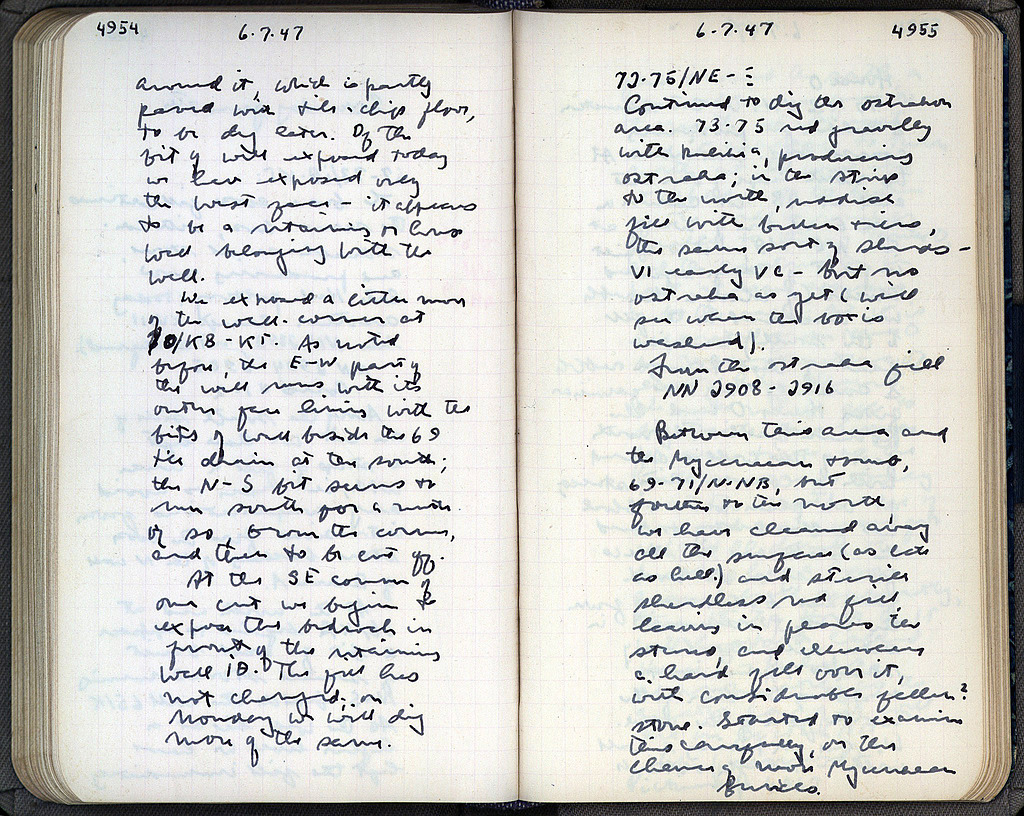 4954
6.7.47
around it, which is partly
paved with tile-chip floor,
to be dug later. Of the
bit of wall exposed today
we have exposed only
the west face - it appears
to be a retaining or house
wall belonging with the
well.
We exposed a little more
of the wall-corner at
70/KB-KΓ. As noted
before, the E-W part of
the wall runs with its
outer face lining with the
bits of wall beside the 69
tile drain at the south;
the N-S bit seems to
run south for a metre
or so, from the corner,
and then to be cut off.
At the SE corner of
our cut we begin to
expose the bedrock in
front of the retaining
wall The fill has
not changed; on
Monday we will dig
more of the same.
6.7.47
4955
73-75/NE-Ξ
Continued to dig the ostrakon
area. 73-75 red gravelly
with producing
ostraka; in the strip
to the north, reddish
fill with broken tiles,
the same sort of sherds -
VI early VC - but no
ostraka as yet (will
see when the box is
washed).
From the ostraka fill
NN 2908-2916
Between this area and
the Mycenaean tomb,
69-71/N-NB, but
further to the north,
we have cleared away
all the surface (as late
as hell!) and sterile
sherdless red fill,
leaving in places the
stereo, and elsewhere
a hard fill over it,
with considerable fallen?
stone. Started to examine
this carefully, on the
chance of more Mycenaean